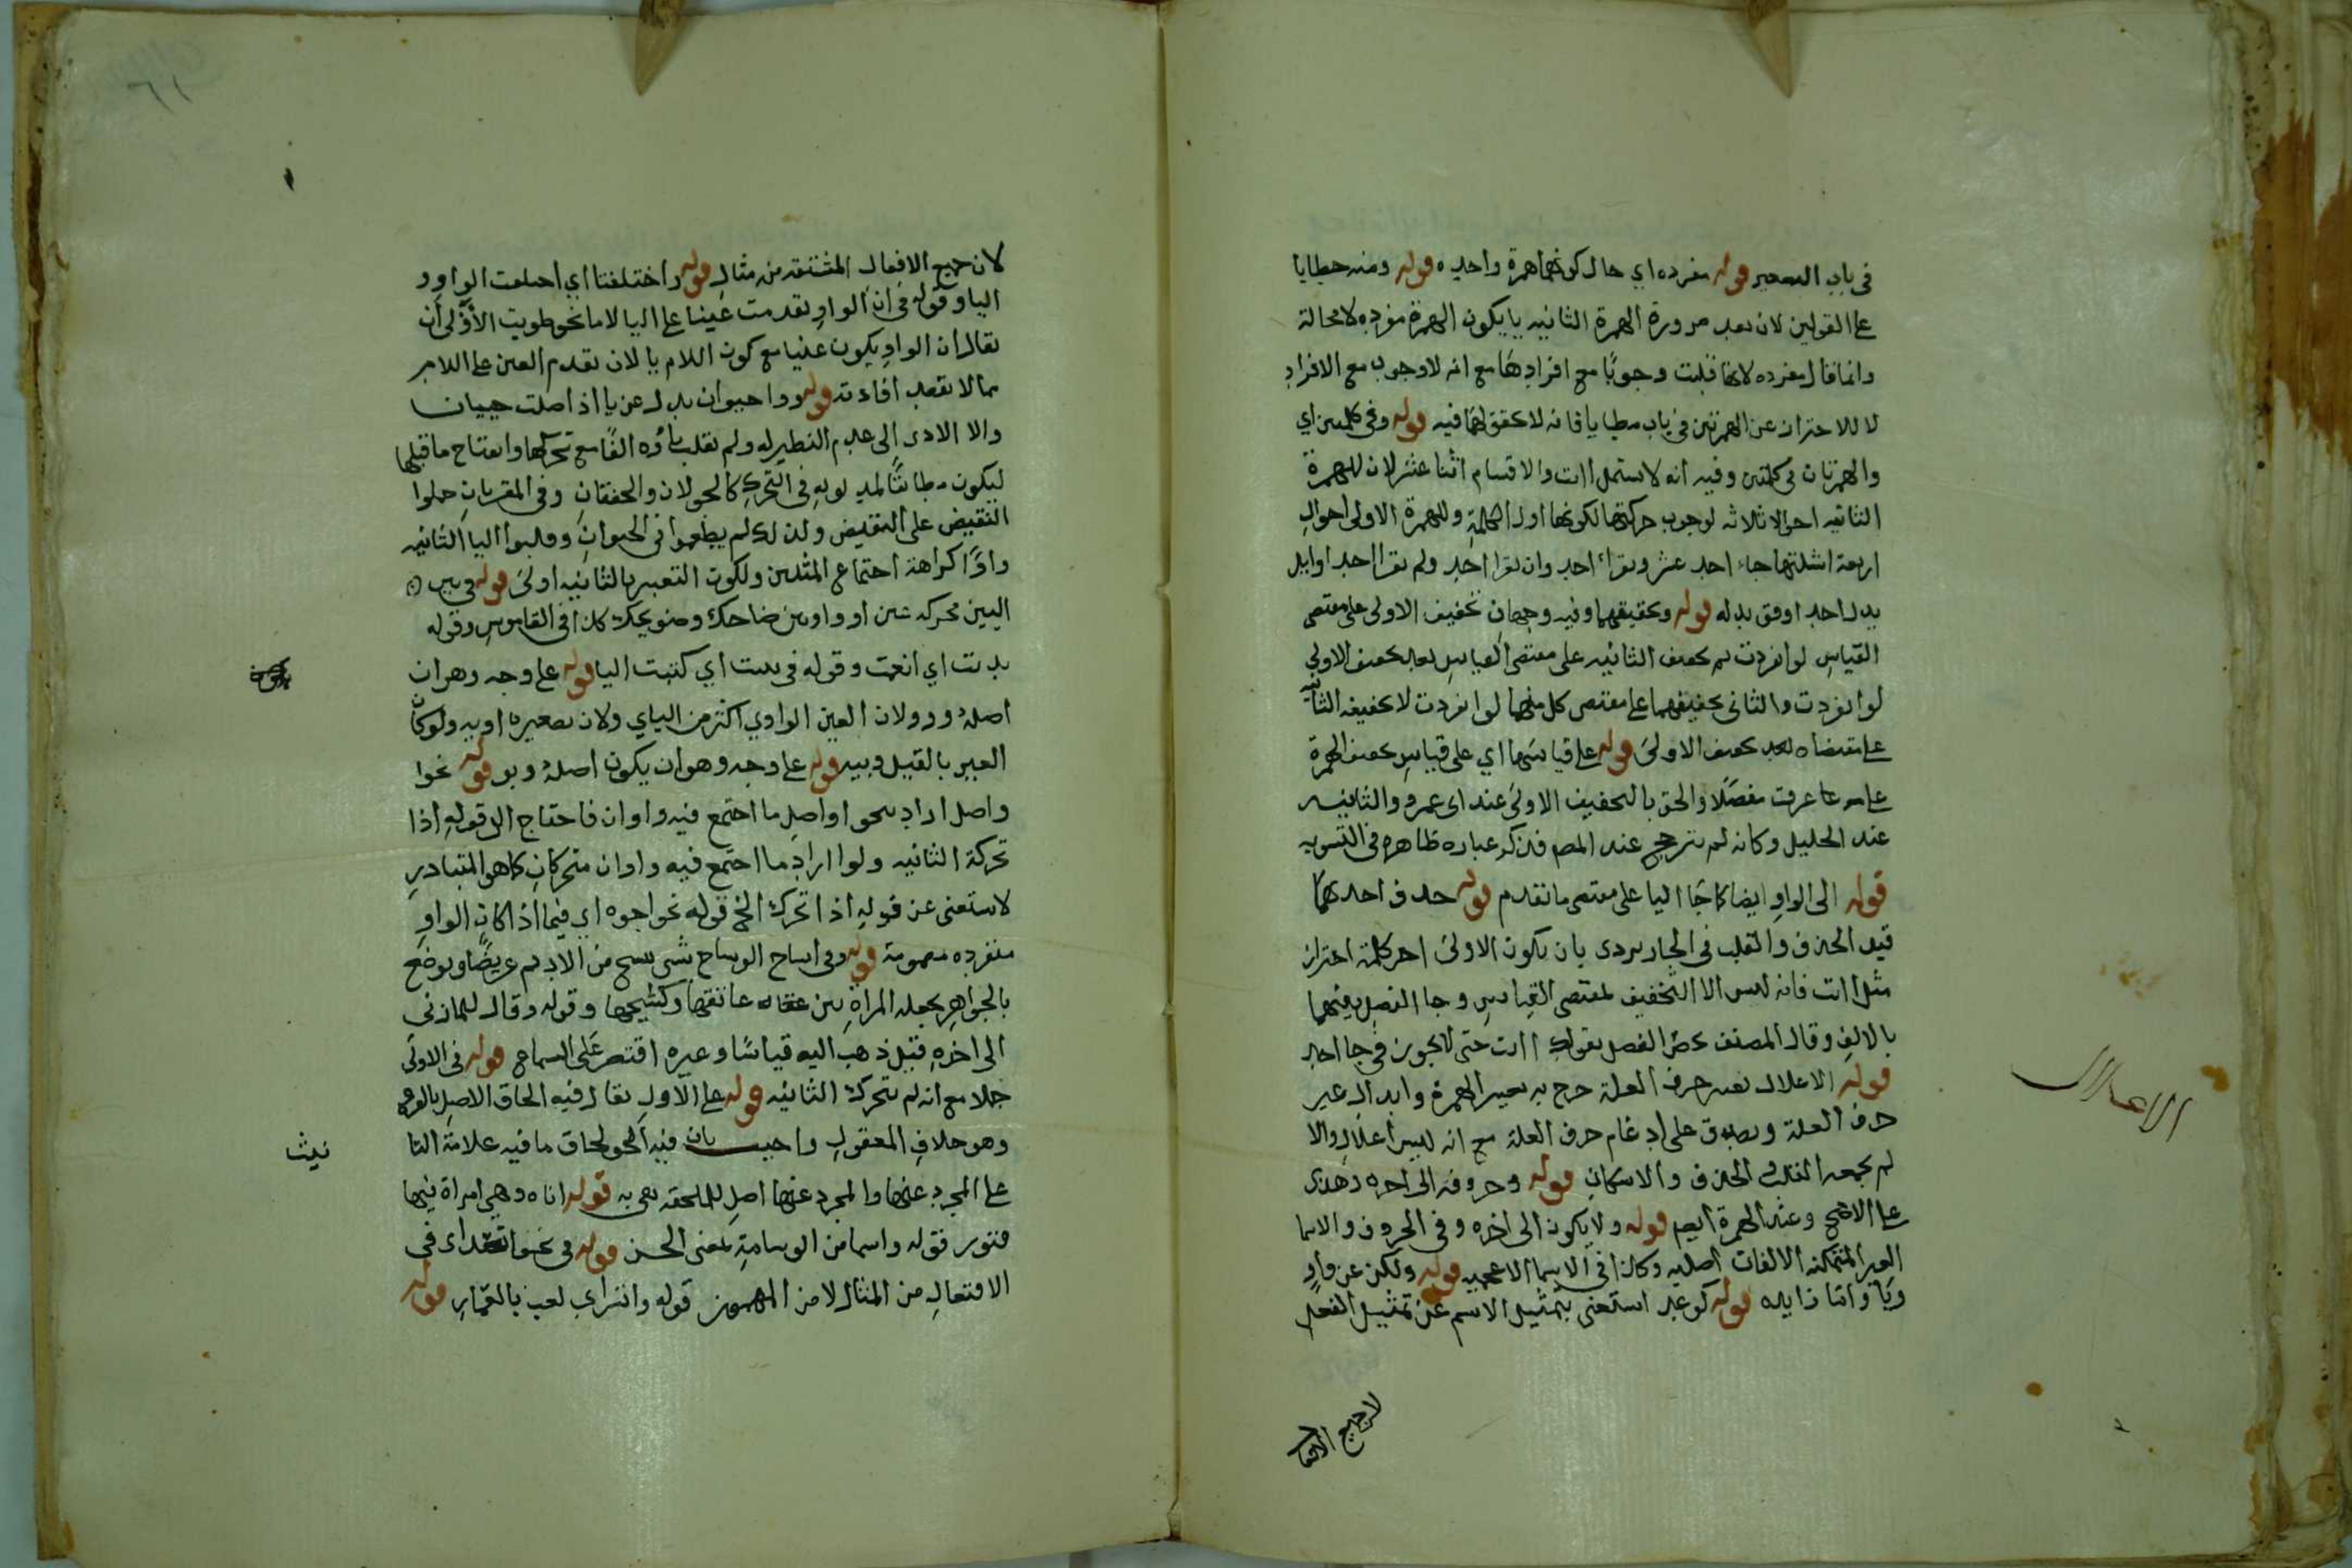 في باب التصغير قوله مفرده اي حال كونهما همزة واحده قوله ومنه خطايا
على القولين لان بعد صرورة الهمزة الثانيه يا يكون الهمزة مفرده لا محالة
وانما قال مفرده لانها قلبت وجوبا مع افرادها مع انه لا وجوب مع الافراد
لا للاحتراز عن الهمزتين في باب مطايا فانه لا تحقق لهما فيه قوله وفي كلمتين اي
والهمزتان في كلمتين وفيه انه لا يستعمل اات والاقسام اثنا عشر لان للهمزة
الثانيه احوالا ثلاثه لوجوب حركتها لكونها اول الكلمة وللهمزة الاولى احوال
اربعة امثلتها جاء احد عشر ويقرأ احد وان يقرا احد ولم يقرا احد اوابل
بدل احد اوفق بدله قوله وتحقيقهما وفيه وجهان تخفيف الاولى على مقتضى
القياس لو انفردت ثم تخفيف الثانيه على مقتضى القياس بعد تخفيف الاولي
لو انفردت والثاني تخفيفهما على مقتضى كل منهما لو انفردت لا تخفيف الثانية
على مقتضاه بعد تخفيف الاولى قوله على قياسهما اي على قياس تخفيف الهمزة
على ما عرفت مفصلا والحق بالتخفيف الاولى عند ابي عمرو والثانيه
عند الخليل وكانه لم يترجح عند المصـ فذكر عباره ظاهره في التسويه
قوله الى الواو ايضا كما جا اليا على مقتضى ما تقدم قوله حذف احدهما
قيل الحذف والقلب في الجاربردى بان يكون الاولى اخر كلمة احتراز
مثل اات فانه ليس الا التخفيف لمقتضى القياس وجا الفصل بينهما
بالالف وقال المصنف الفصل بقولك اات حتى لا يجوز في جا احد
قوله الاعلال تغيير حرف العلة خرج به تغيير الهمزة وابدال غير
حرف العلة ويصدق على ادغام حرف العلة مع انه ليس اعلالا والا
لم يجمعه القلب والحذف والاسكان قوله وحروفه الى اخره وهذا
على الاصح وعند الهمزة ايضـ قوله ولا يكون الى اخره وفي الحروف والاسما
الغير المتمكنه الالفات اصليه وكذا في الاسما الاعجميه قوله ولكن عن واو
ويا واتا زايده قوله كوعد استغنى بتمثيل الاسم عن تمثيل الفعل
لا جميع الافعا
الاعلال
٦١
لان جميع الافعال المشتقه من مثال قوله واختلفتا اي اختلفت الواو و
اليا وقوله في ان الواو تقدمت عينا على اليا لاما نحو طويت الأولى أن
يقال ان الواو يكون عينا مع كون اللام يا لان تقدم العين على اللام
مما لا يقصد افادته قوله وواو حيوان بدل عن يا اذ اصلت حييان
والا الادى الى عدم النظير له ولم تقلب ياؤه الفا مع تحركها وانفتاح ما قبلها
ليكون مطابقا لمدلوله في التحرك كالجولان والخفقان وفي المقربان حملوا
النقيض على النقيض ولذلك لم يدغموا في الحيوان وقلبوا اليا الثانيه
واوا كراهة اجتماع المثلين ولكون التغيير بالثانيه اولى قوله وبين
اليين محركه عين او واد بين ضاحك وضويحك كذا في القاموس وقوله
يديت اي انعمت وقوله في ييت اي كتبت اليا قوله على وجه وهو ان
اصله وو ولان العين الواوي اكثر من اليايي ولان تصغيره اويه ولو كان
العين باء لقيل وييه قوله على وجه وهو ان يكون اصله ويو قوله نحوا
واصل اراد بنحو اواصل ما اجتمع فيه واوان فاحتاج الى قوله اذا
تحركة الثانيه ولو اراد ما اجتمع فيه واوان متحركان كما هو المتبادر
لاستغنى عن قوله اذا تحركت الخ قوله نحو اجوه اي فيما اذا كان الواو
منفرده مضمومة قوله وفي اشاح الوشاح شي ينسج من الاديم عريضا ويرضع
بالجواهر يجعله المراة بين عاتقها وكشيحها وقوله وقال المازني
الى اخره قيل ذهب اليه قياسا وغيره اقتصر على السماع قوله في الاولى
جلا مع انه لم يتحرك الثانيه قوله على الاول يقال فيه الحاق الاصل بالفرع
وهو خلاف المعقول واجيب بان فيه الحو لحاق ما فيه علامة التا
نيث
على المجرد عنها والمجرد عنها اصل للملحقه هي به قوله اناه وهي امراة فيها
فتور قوله واسما من الوسامة بمعنى الحسن قوله في نحو اتعد اى في
الافتعال من المثال لا من المهموز قوله واتسر اي لعب بالقمار قوله